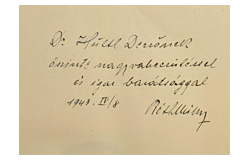 Dr. Hültl Dezsőnek
őszinte nagyrabecsüléssel
és igaz barátsággal
1943. IV/8